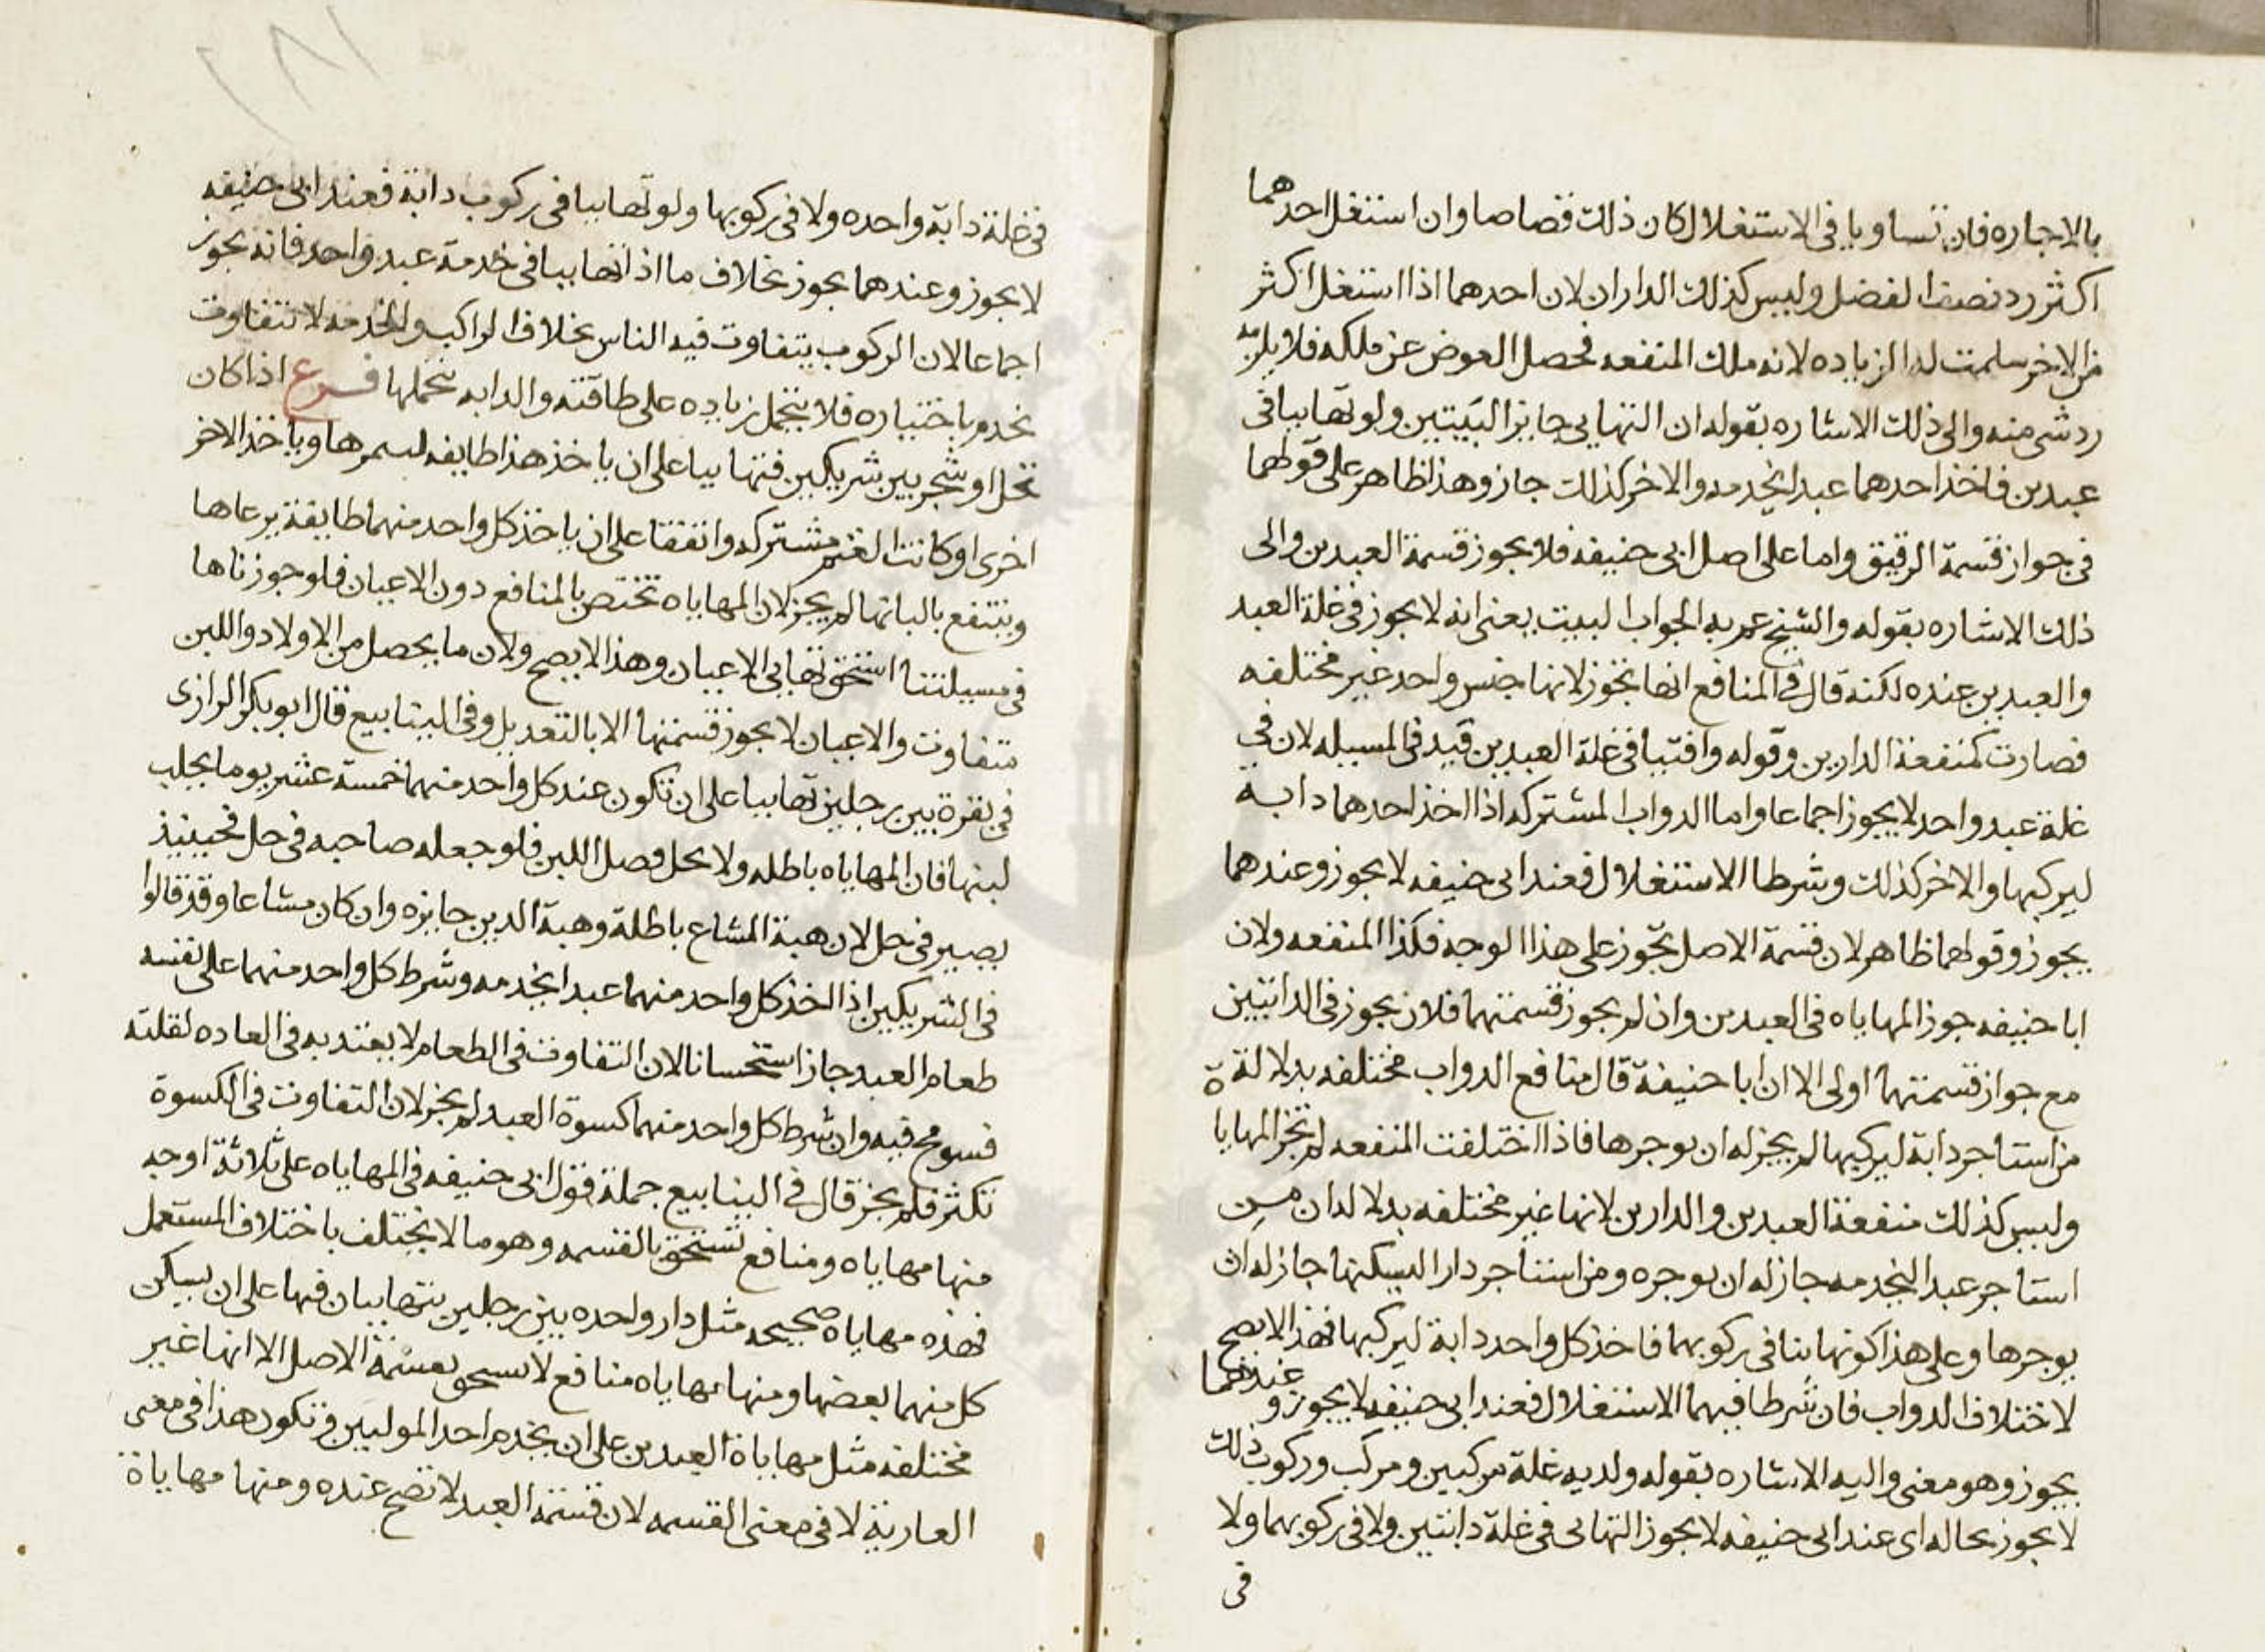 بالاجاره فان تساويا في الاستغلال كان ذلك قصاصا وان استغل احدهما
اكثر رد نصف الفضل وليس كذلك الداران لان احدهما اذا استغل اكثر
من الاخر سلمت له الزياده لانه ملك المنفعه فحصل العوض عن ملكه فلا يلزمه
رد شي منه والى ذلك الاشاره بقوله ان التهايي جايز البيتين ولو تهاييا في
عبدين فاخذ احدهما عبدا يخدمه والاخر كذلك جاز وهذا ظاهر على قولهما
في جواز قسمة الرقيق واما على اصل ابي حنيفه فلا يجوز قسمة العبدين والى
ذلك الاشاره بقوله والشيخ عم به الجواب البيت يعني انه لا يجوز في غلة العبد
والعبدين عنده لكنه قال في المنافع انها تجوز لانها جنس واحد غير مختلفه
فصارت كمنفعة الدارين وقوله وافتيا في غلة العبدين قيد في المسيله لان في
غلة عبد واحد لا يجوز اجماعا واما الدواب المشتركه اذا اخذ احدهما دابة
ليركبها والاخر كذلك وشرطا الاستغلال فعند ابي حنيفه لا يجوز وعندهما
يجوز وقولهما ظاهر لان قسمة الاصل تجوز على هذا الوجه فكذا المنفعه ولان
ابا حنيفه جوز المهاياه في العبدين وان لم يجوز قسمتهما فلان يجوز في الدابتين
مع جواز قسمتهما اولى الا ان ابا حنيفة قال منافع الدواب مختلفه بدلالة
من استاجر دابة ليركبها لم يجز له ان يوجرها فاذا اختلفت المنفعه لم تجز المهاياة
وليس كذلك منفعة العبدين والدارين لانها غير مختلفه بدلاله ان من
استاجر عبدا ليخدمه جاز له ان يوجره ومن استاجر دارا ليسكنها جاز له ان
يوجرها وعلى هذا كونها بنا في ركوبهما فاخذ كل واحد دابة ليركبها فهذا لا يصح
لاختلاف الدواب فان شرطا فيهما الاستغلال فعند ابي حنيفه لا يجوز وعندهما
يجوز وهو معنى واليه الاشاره بقوله ولديه غلة مركبين ومركب وركوب ذلك
لا يجوز بحاله اي عند ابي حنيفه لا يجوز التهايى في غلة دابتين ولا في ركوبهما ولا
في
١٨٦
في غلة دابة واحده ولا في ركوبها ولو تهاييا في ركوب دابة فعند ابي حنيفه
لا يجوز وعندهما يجوز بخلاف ما اذا تهاييا في خدمة عبد واحد فانه يجوز
اجماعا لان الركوب يتفاوت فيه الناس بخلاف الراكب والخدمه لا تتفاوت
يخدم باختياره فلا يتحمل زياده على طاقته والدابه تحملها فرع اذا كان
نخل او شجر بين شريكين فتهاييا على ان ياخذ هذا طايفه يستثمرها وياخذ الاخر
اخرى او كانت الغنم مشتركه واتفقا على ان ياخذ كل واحد منهما طايفة يرعاها
وينتفع بالبانها لم يجز لان المهاياه تختص بالمنافع دون الاعيان فلو جوزناها
في مسيلتنا استحق تهايى الاعيان وهذا لا يصح ولان ما يحصل من الاولاد واللبن
متفاوت والاعيان لا يجوز قسمتها الا بالتعديل وفي الينابيع قال ابو بكر الرازى
في بقرة بين رجلين تهاييا على ان تكون عند كل واحد منهما خمسة عشر يوما يحلب
لبنها فان المهاياه باطله ولا يحل فضل اللبن فلو جعله صاحبه في حل فحينيذ
يصير في حل لان هبة المشاع باطلة وهبة الدين جايزه وان كان مشاعا وقد قالوا
في الشريكين اذا اخذ كل واحد منهما عبدا يخدمه وشرط كل واحد منهما على نفسه
طعام العبد جاز استحسانا لان التفاوت في الطعام لا يعتد به في العاده لقلته
فسومح فيه وان شرط كل واحد منهما كسوة العبد لم يجز لان التفاوت في الكسوة
تكثر فلم يجز قال في الينابيع جملة قول ابي حنيفه في المهاياه على ثلاثة اوجه
منها مهاياه ومنافع تستحق بالقسمه وهو ما لا يختلف باختلاف المستعمل
فهذه مهاياه صحيحه مثل دار واحده بين رجلين يتهاييان فيها على ان يسكن
كل منهما بعضها ومنها مهاياه منافع لا تستحق بقسمة الاصل الا انها غير
مختلفه مثل مهاياة العبدين على ان يخدم احد الموليين فتكون هذا في معنى
العارية لا في معنى القسمه لان قسمة العبد لا تصح عنده ومنها مهاياة